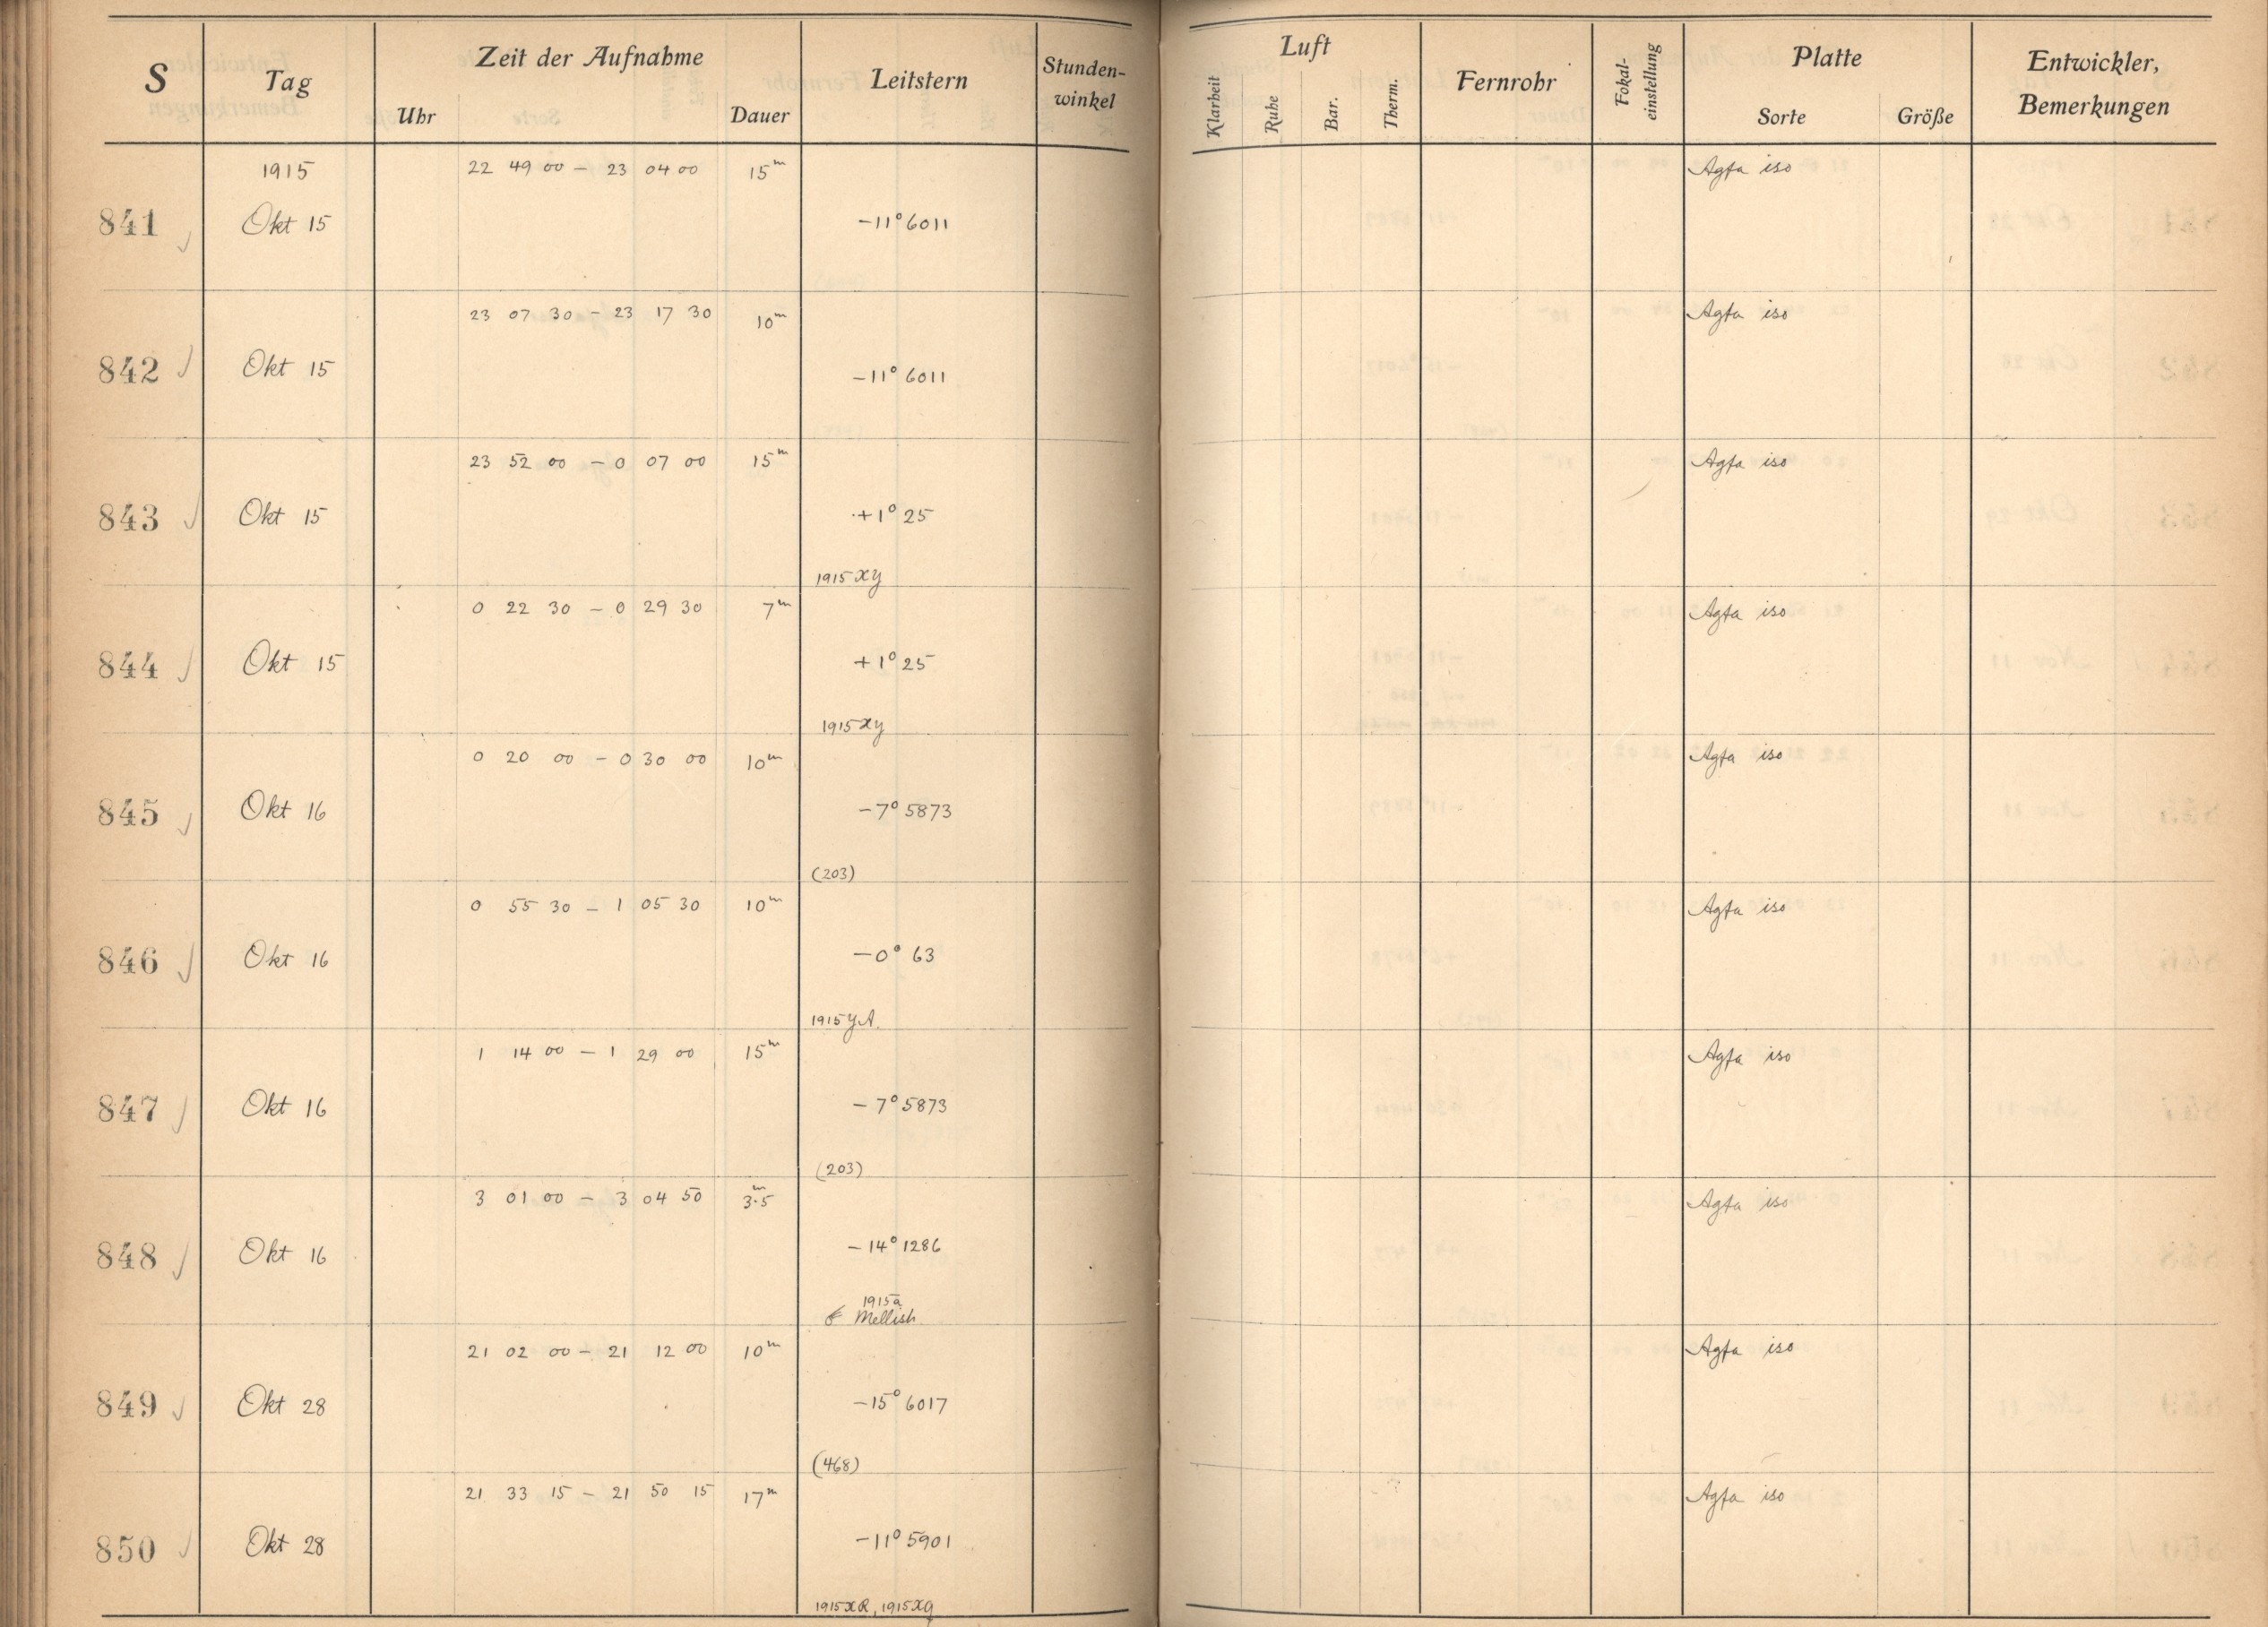 S Tag Zeit der Aufnahme Leitstern Stunden-winkel Luft Fernrohr Fokal-einstellung Platte Entwickler, Bemerkungen
Uhr Dauer Klarheit Ruhe Bar. Therm. Sorte Größe
1915 22 49 00 – 23 04 00 15m Agfa iso
841 Okt 15 –11° 6011
23 07 30 – 23 17 30 10m Agfa iso
842 Okt 15 –11° 6011
23 52 00 – 0 07 00 15m Agfa iso
843 Okt 15 +1° 25
1915 XY
0 22 30 – 0 29 30 7m Agfa iso
844 Okt 15 +1° 25
1915 XY
0 20 00 – 0 30 00 10m Agfa iso
845 Okt 16 –7° 5873
(203)
0 55 30 – 1 05 30 10m Agfa iso
846 Okt 16 –0° 63
1915 YA.
1 14 00 – 1 29 00 15m Agfa iso
847 Okt 16 –7° 5873
(203)
3 01 00 – 3 04 50 3m.5 Agfa iso
848 Okt 16 –14° 1286
1915a
Mellish
21 02 00 – 21 12 00 10m Agfa iso
849 Okt 28 –15° 6017
(468)
21 33 15 – 21 50 15 17m Agfa iso
850 Okt 28 –11° 5901
1915 XR, 1915 XQ